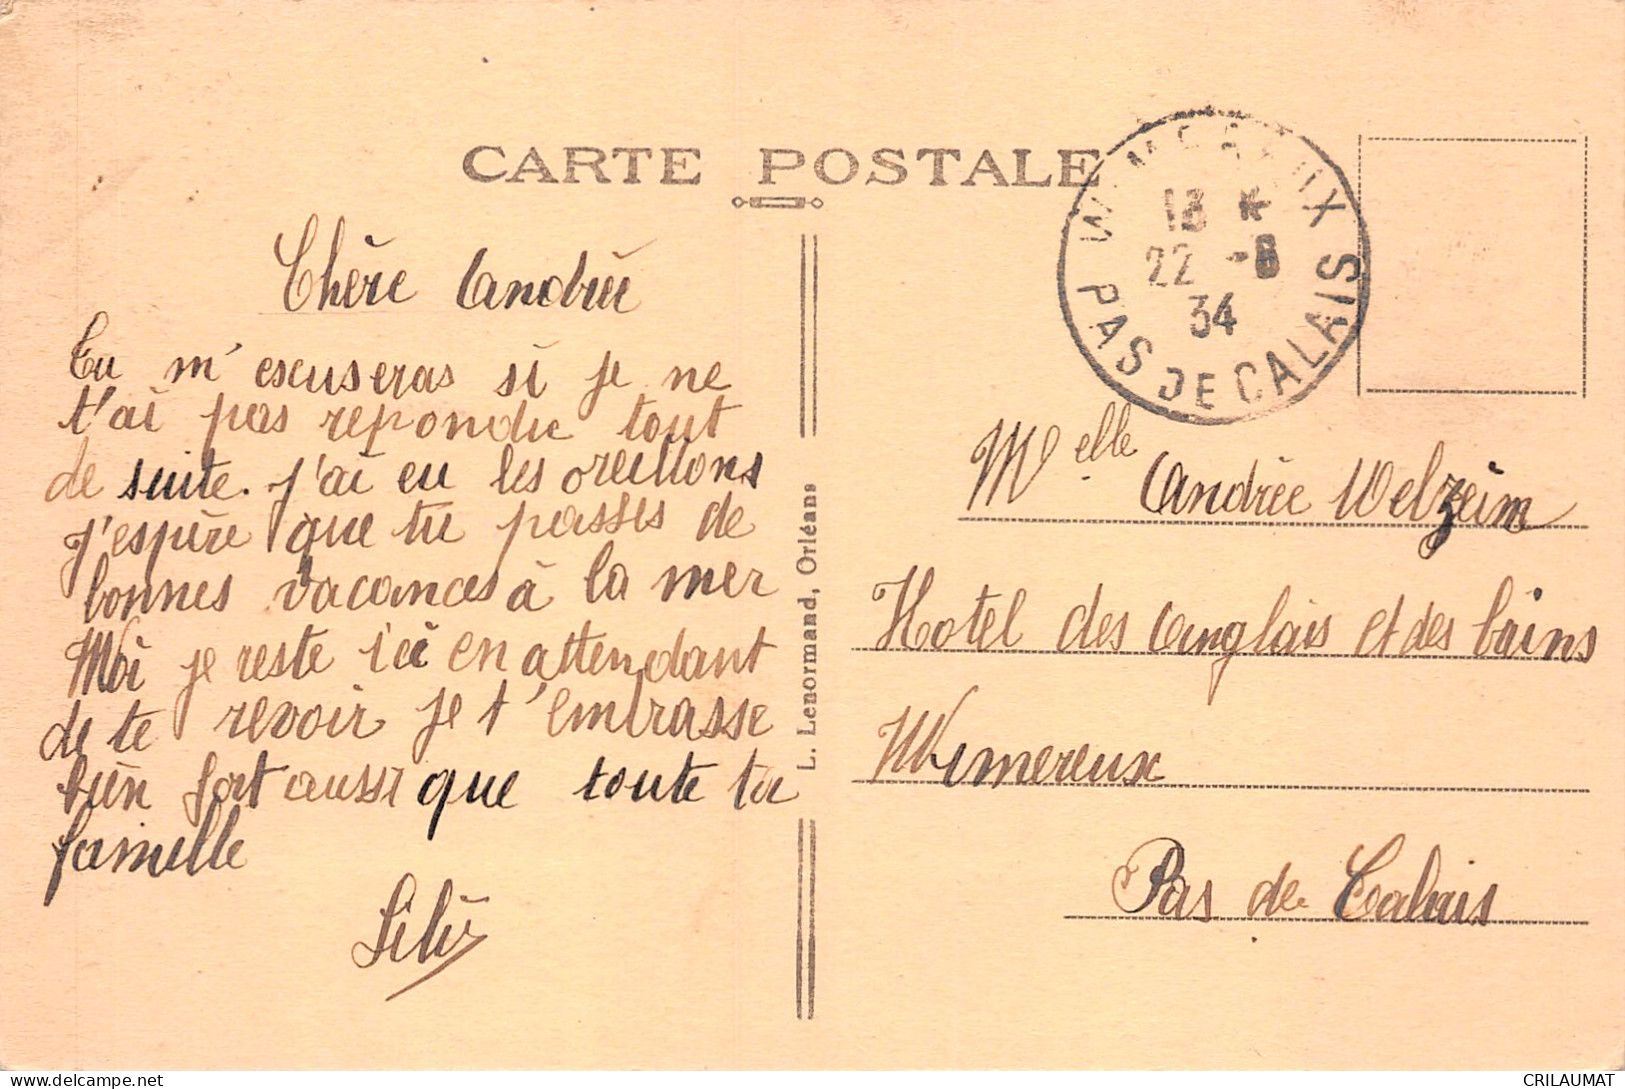 CARTE POSTALE
WIMEREUX
18 *
22 -8
34
PAS DE CALAIS
Chère Andrée
Tu m'escuseras si je ne
t'ai pas repondu tout
de suite. j'ai eu les oreillons
j'espère que tu passes de
bonnes vacances à la mer
Moi je reste ici en attendant
de te revoir je t'embrasse
bien fort aussi que toute ta
famille
Lili
L. Lenormand, Orléans
Melle Andrée Welzeim
Hotel des Anglais et des bains
Wimereux
Pas de Calais
CRILAUMAT